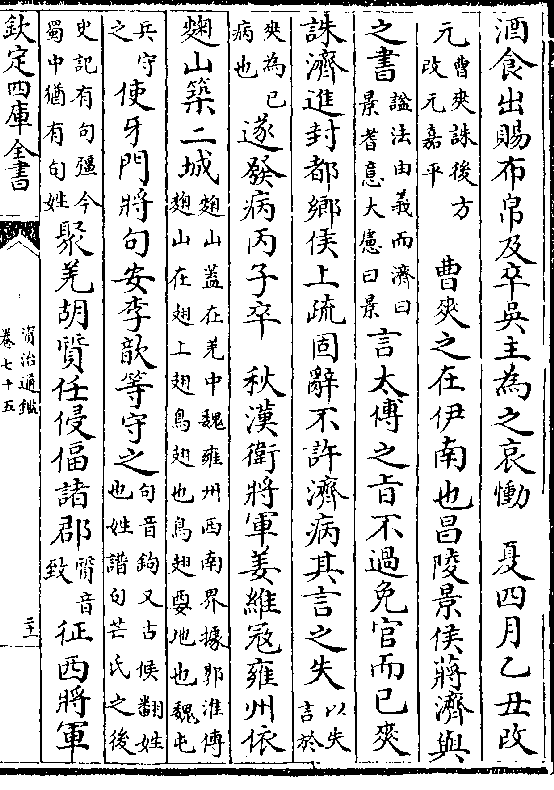 酒食出賜布帛及卒吳主為之哀慟　夏四月乙丑改
元曹爽誅後方改元嘉平　曹爽之在伊南也昌陵景侯蔣濟與
之書諡法由義而濟曰景耆意大慮曰景言太傅之旨不過免官而已爽
誅濟進封都鄉侯上疏固辭不許濟病其言之失以失言於
爽為已病也遂發病丙子卒　秋漢衛將軍姜維寇雍州依
麴山築二城麴山蓋在羌中魏雍州西南界據郭淮傳麴山在翅上翅鳥翅也鳥翅要地也魏屯
兵守之使牙門將句安李歆等守之句音鉤又古候翻姓也姓譜句芒氏之後
史記有句彊今蜀中猶有句姓聚羌胡質任侵偪諸郡質音致征西將軍
欽定四庫全書
資治通鑑
卷七十五
二十一